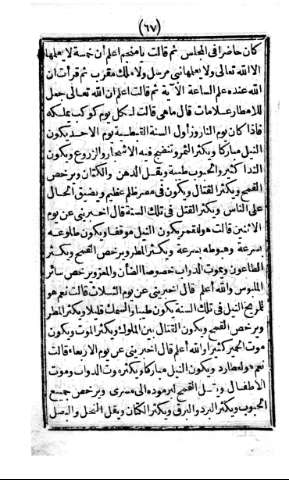 (٦٧)
كان حاضرا فى المجلس ثم قالت يا منجم اعلم أن خمسة لا يعلمها
الا الله تعالى ولا يعلمها نبى مرسل ولا ملك مقرب ثم قرأت ان
الله عنده علم الساعة الآية ثم قالت اعلم ان الله تعالى جعل
للامطار علامات قال ماهى قالت لكل يوم كوكب يملكه
فاذا كان يوم الناروز أول السنة القبطية يوم الاحد يكون
النيل مباركا ويكثر الثمر وتنضج فيه الاشجار والزروع ويكون
الندا كثير والحبوب طيبة ويقل الدهن والكتان ويرخص
القمح ويكثر القتال ويكون فى مصر ظلم عظيم ويضيق الحال
على الناس ويكثر القتل فى تلك السنة قال اخبرينى عن يوم
الاثنين قالت هو للقمر يكون النيل موفقا ويكون طلوعه
بسرعة وهبوطه بسرعة ويكثر المطر ويرخص القمح ويكثر
الطاعون وبموت الدواب خصوصا الضأن والمعز ويرخص سائر
الملبوس والله أعلم قال اخبرينى عن يوم الثلاث قالت نعم هو
للمريخ النيل فى تلك السنة يكون طيبا والسمك قليلا ويكثر المطر
ويرخص القمح ويكون القتال بين الملوك ويكثر الموت ويكون
موت الحمير كثيرا والله أعلم قال اخبرينى عن يوم الاربعاء قالت
نعم هو لعطارد ويكون النيل مباركا ويكثر موت الدواب وموت
الاطفال القمح برموده الى مسرى ويرخص جميع
الحبوب ويكثر البرد والبرق ويكثر الكتان ويقل النخل والبصل